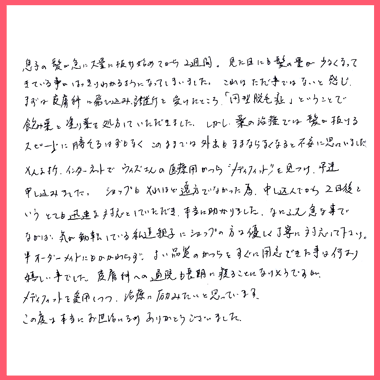 息子の髪が急に大量に抜け始めてから2週間。見た目にも髪の量が少なくなって
きている事がはっきりわかるようになってしまいました。これはただ事ではないと感じ、
まずは皮膚科に駆け込み診断を受けたところ、「円型脱毛症」ということで
飲み薬と塗り薬を処方していただきました。しかし、薬の治療では髪が抜ける
スピードに勝てるはずもなく このままでは外出もままならなくなると不安に思っていました
インターネットでウィズさんの医療用かつら"メディフィット"を見つけ、早速
申し込みました。ショップも 遠方でなかった為、申し込んでから2日後と
いう とても迅速な対応をしていただき、本当に助かりました。なにぶん急な事で
ながら、気が動転している私達親子にショップの方は優しく丁寧に対応して下さり、
半オーダーメイドにもかかわらず、よい品質のかつらをすぐに用意できた事は何より
嬉しい事でした。皮膚科への通院も長期に渡ることになりそうですが、
メディフィットを愛用しつつ、治療に励みたいと思っています。
この度は本当にお世話になり ありがとうございました。